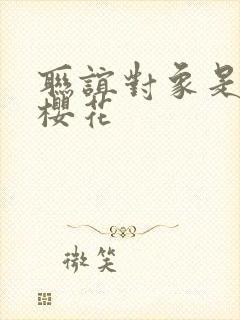 聯誼對象是
櫻花
微笑